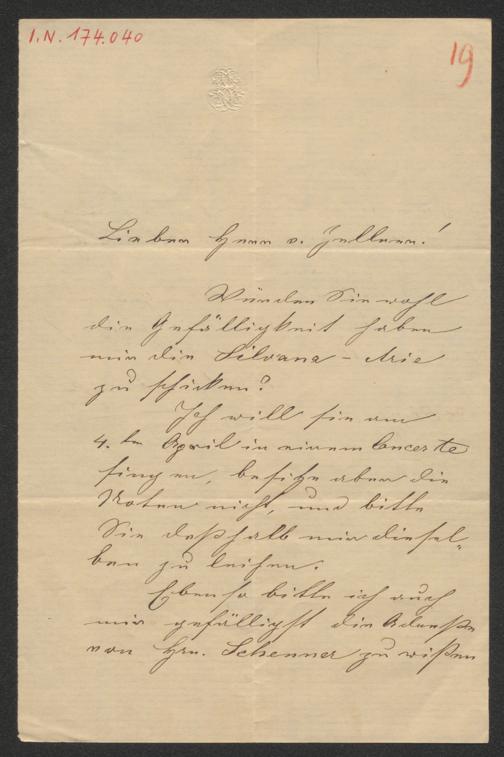 I.N. 174.040
19
Lieber Herr v. Zellner!
Würden Sie wohl
die Gefälligkeit haben
mir die Silvana – Arie
zu schicken?
Ich will sie am
4. ten April in einem Concerte
singen, besitze aber die
Noten nicht, und bitte
Sie deßhalb mir diesel„
ben zu leihen.
Ebenso bitte ich auch
mir gefälligst die Adresse
von Hrn. Schenner zu wißen